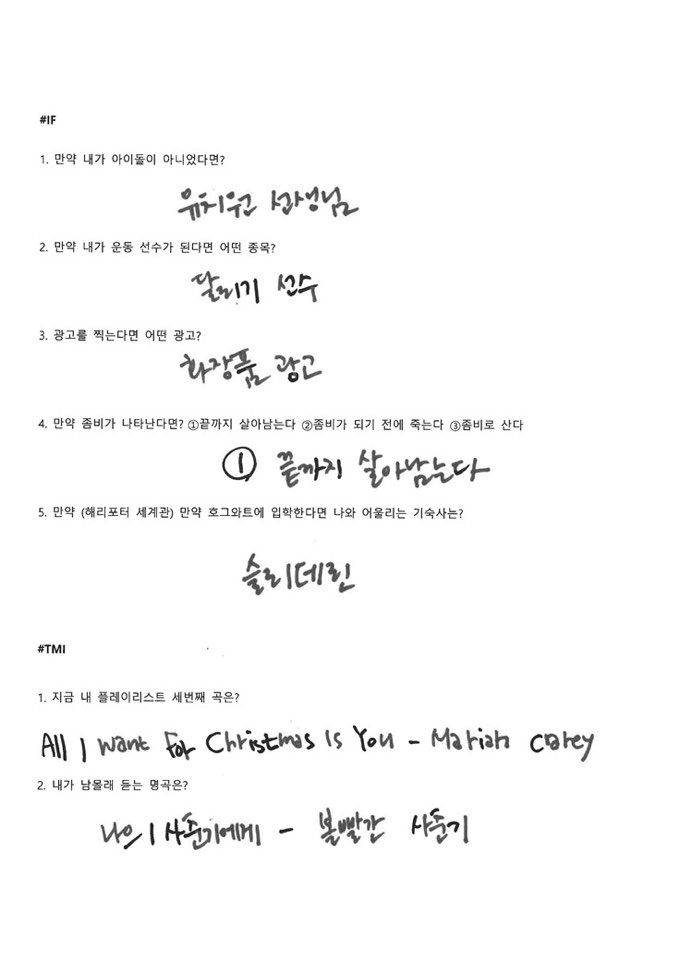 #IF
1. 만약 내가 아이돌이 아니었다면?
유치원 선생님
2. 만약 내가 운동 선수가 된다면 어떤 종목?
달리기 선수
3. 광고를 찍는다면 어떤 광고?
화장품 광고
4. 만약 좀비가 나타난다면? ①끝까지 살아남는다 ②좀비가 되기 전에 죽는다 ③좀비로 산다
① 끝까지 살아남는다
5. 만약 (해리포터 세계관) 만약 호그와트에 입학한다면 나와 어울리는 기숙사는?
슬리데린
#TMI
1. 지금 내 플레이리스트 세번째 곡은?
All I want For Christmas Is You - Mariah carey
2. 내가 남몰래 듣는 명곡은?
나의 사춘기에게 - 볼빨간 사춘기